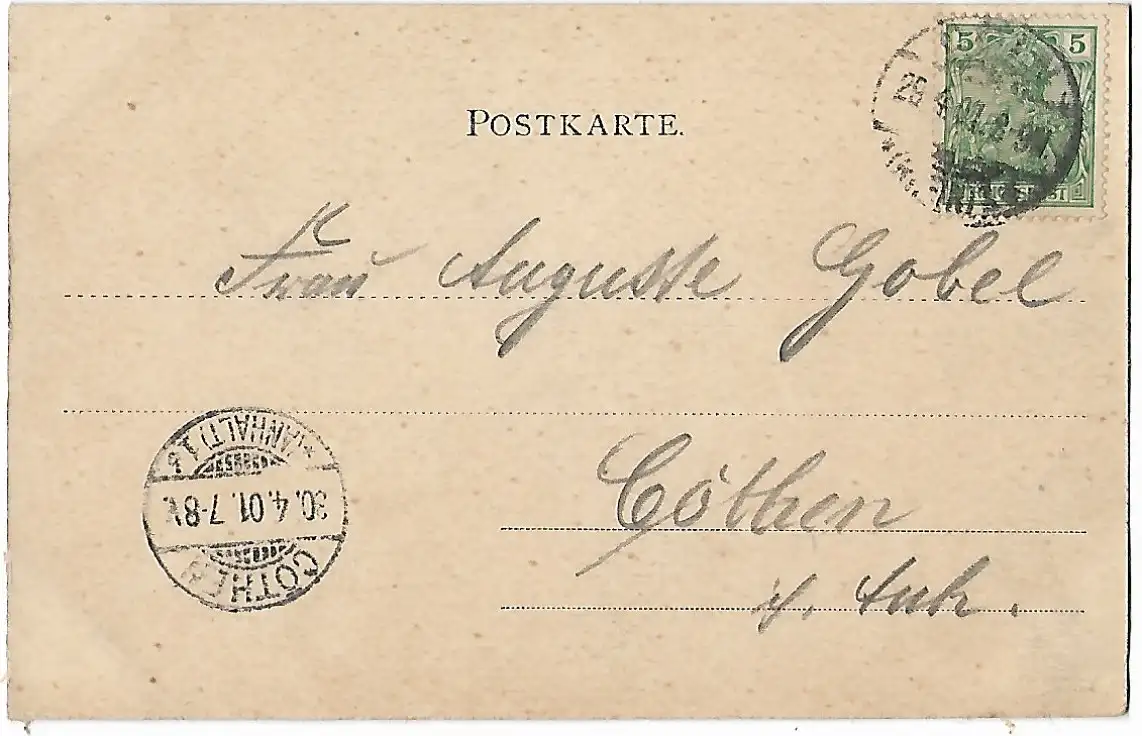 5 5
POSTKARTE.
Frau Auguste Gobel
Cöthen
i/. Anh.
CÖTHEN
30.4.01.7-8V.
(ANHALT)